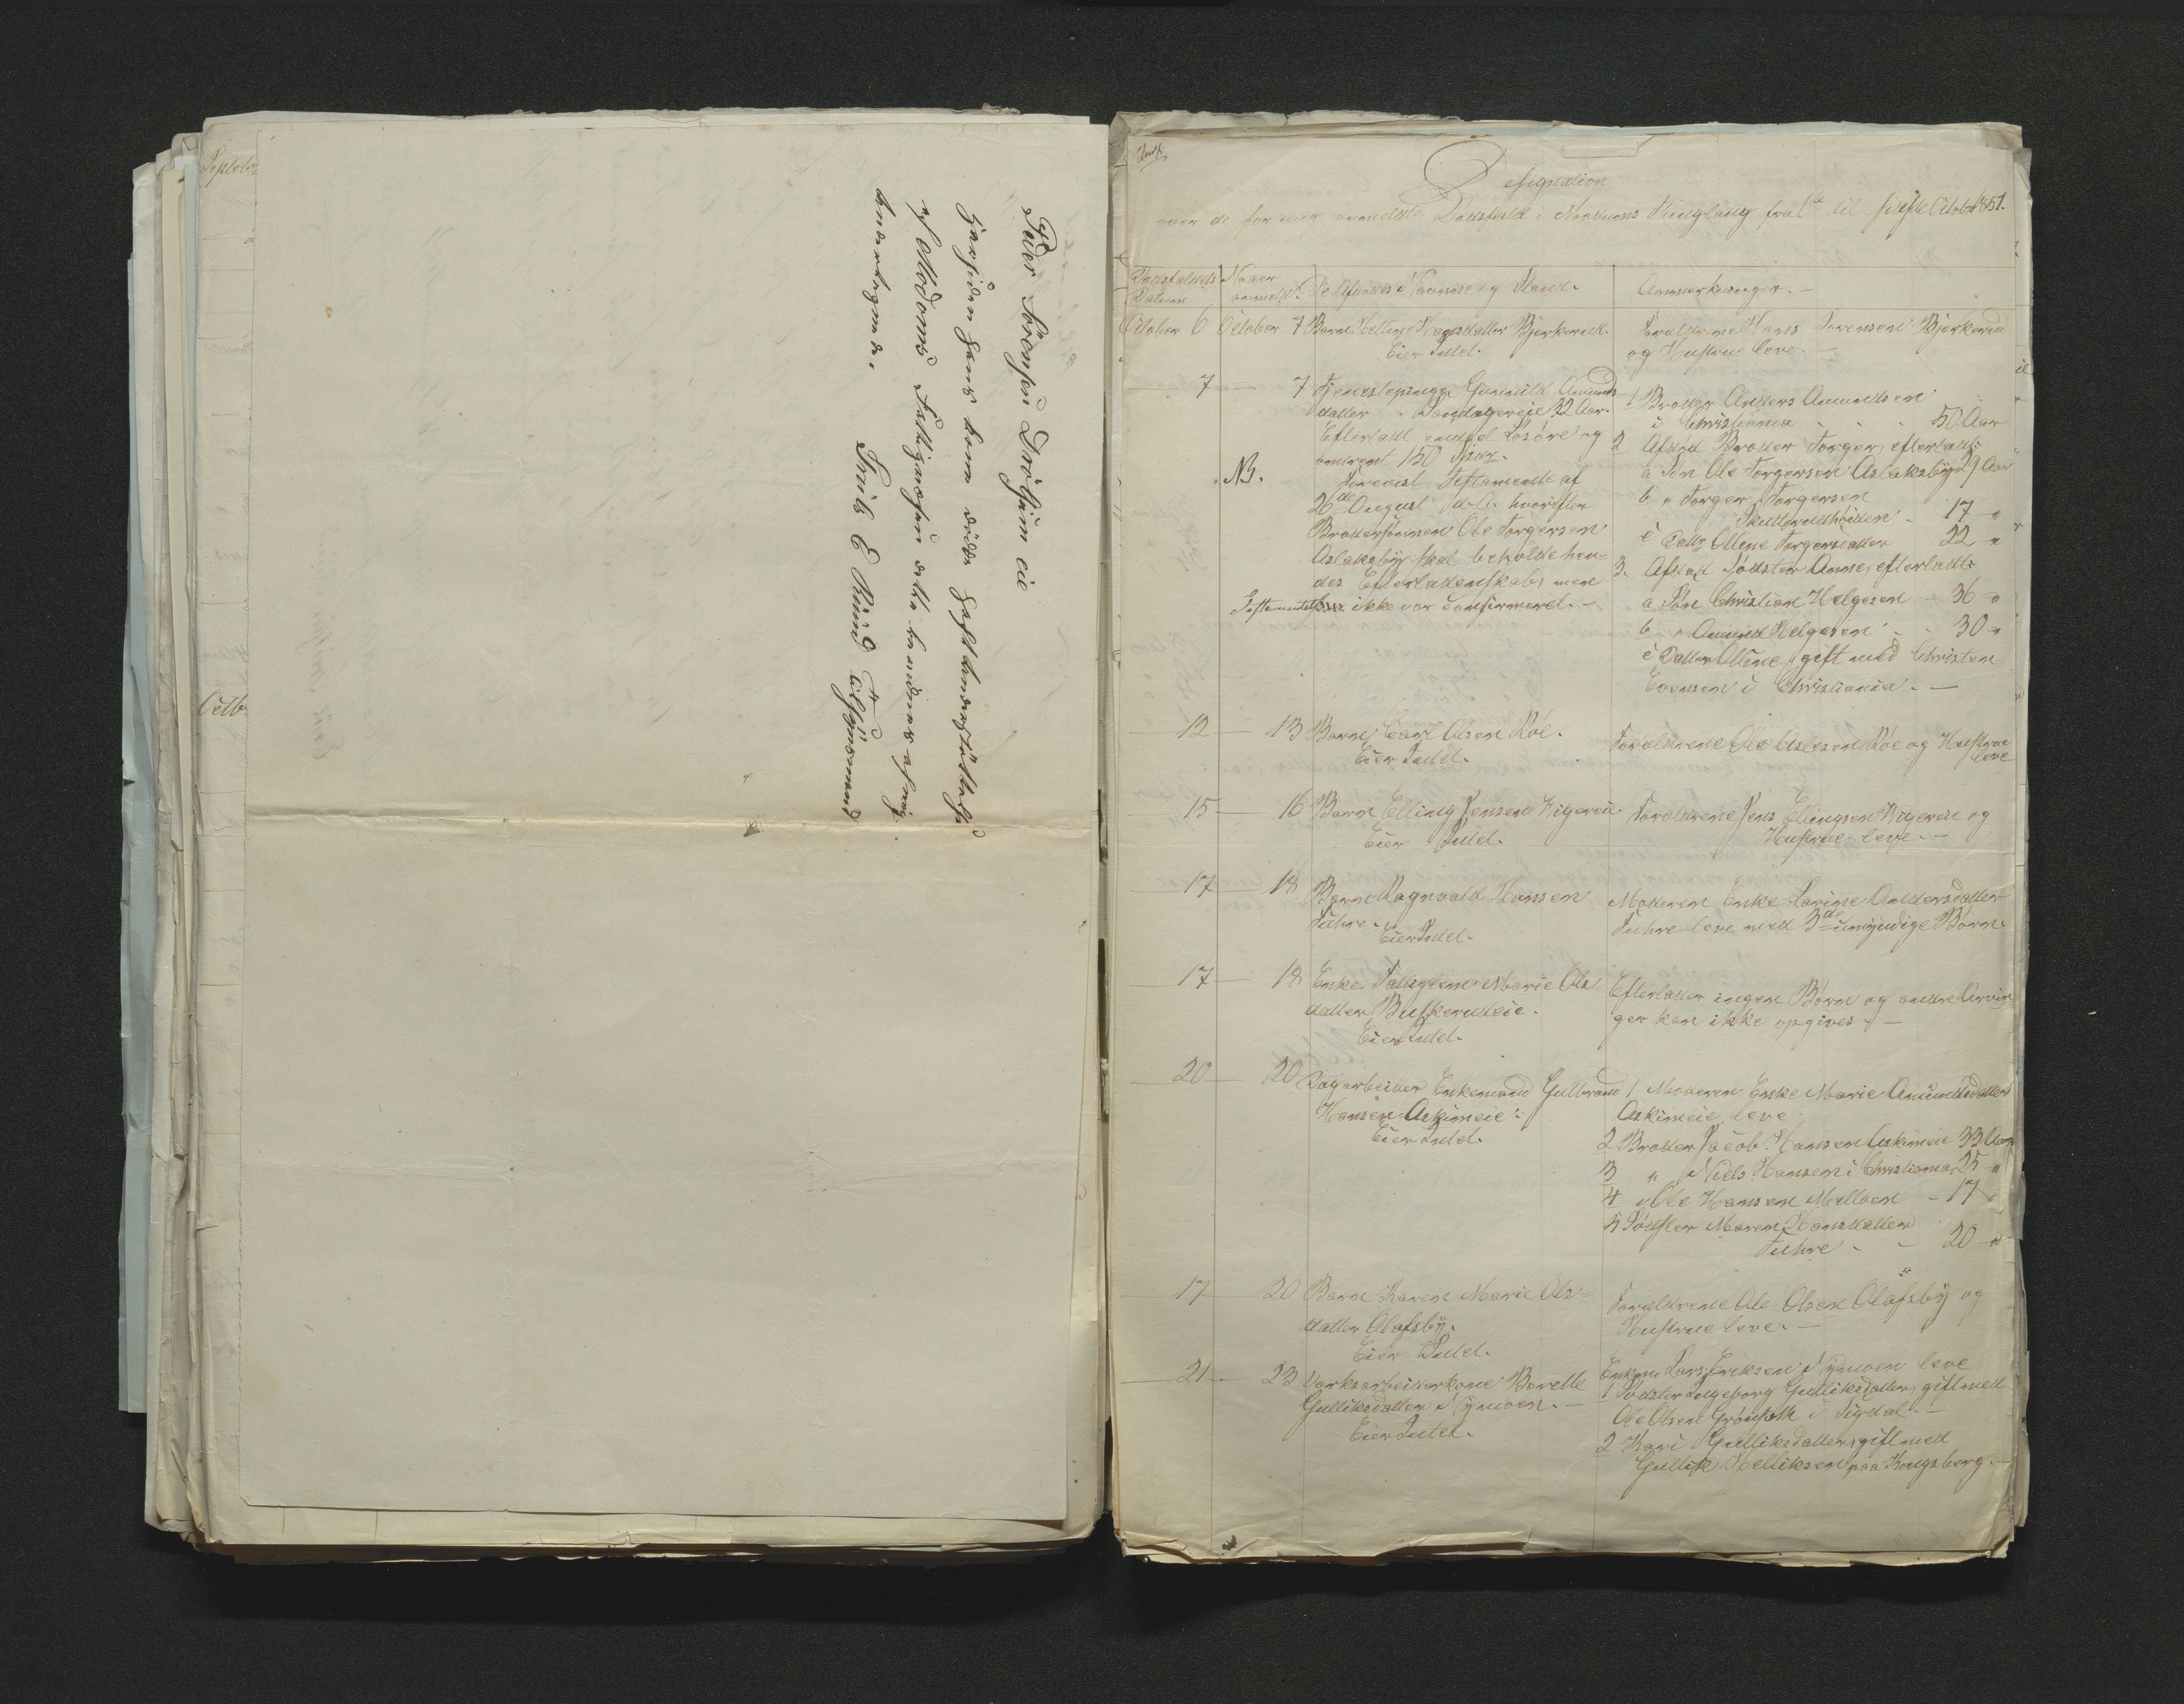 Septebr
Octb
Peder Sörensen Drölsum eie
haviden hans kone
af Modums Fattigvæsen dette af mig
Trulls E Ruud Tilsynsmand
Indk
Designation
over de for mig anmeldte Dødsfald i Modums Thinglaug fra 1ste til sidste October 1851.
Dødsfaldets Datum
Naaer anmeldt.
De Afdødes Navne og Stand.
Anmærkninger. —
October 6 October 7 Barn Helline Hansdatter Bjørkerud.
Eier Intet.
Forældrene Hans Sørensen Bjørkerud
og Hustrue leve. —
7 — 7 Tjenestepinge Gunnild Amunds
datter Landagereie 72 Aar.
Efterladt endeel Løsøre og
omtrent 150 Spdr.
NB. Forevist Testamente af
26de August d. A. hvorefter
Brodersønnen Ole Torgersen
Aslaksby skal beholde hen=
des Efterladenskab, men
Testamentet ikke var confirmeret. —
1 Broder Anders Amundsen
i Christiania . . . 50 Aar
2 Afdød Broder Torger, efterladt:
a Søn Ole Torgersen Aslaksby 29 Aar
b " Torger Torgersen
Skuterudhøiden - 17 - "
c Dattr Olline Torgersdatter 22 "
3. Afdød Sødster Anne, efterladt:
a Søn Christian Helgesen - 36 "
b " Amund Helgesen - - 30 - "
c Datter Olline, gift med Christen
Evensen i Christiania. —
12 — 13 Barn Carl Olsen Røe.
Eier Intet.
Forældrene Ole Aslesen Røe og Hustrue
leve
15 — 16 Barn Elling Jensen Kigereie
Eier Intet.
Forældrene Jens Ellingsen Kigereie og
Hustrue leve. —
17 — 18 Barn Ragnvald Hansen
Fuhre.
Eier Intet.
Moderen Enke Karine Andersdatter
Fuhre leve med 3de umyndige Børn.
17 — 18 Enke Fattiglem Marie Ols
datter Buskerudeie.
Eier Intet.
Efterlader ingen Børn og andre Arvin
ger kan ikke opgives. —
20 — 20 Dagarbeider Enkemand Gulbrand
Hansen Askimeie.
Eier Intet.
1 Moderen Enke Marie Amundsdatter
Askimeie leve
2 Broder Jacob Hansen Askimeie 33 Aar
3 " Niels Hansen i Christiania 25 "
4 " Ole Hansen Melloen - 17 "
5 Sødster Maren Hansdatter
Fuhre - - 20 - "
17 — 20 Barn Karen Marie Ols=
datter Olafsby.
Eier Intet.
Forældrene Ole Olsen Olafsby og
Hustrue leve. —
21 — 23 Værksarbeiderkone Borette
Gulliksdatter Nymoen. —
Eier Intet.
Enkem: Lars Eriksen Nymoen leve
1 Sødster Ingeborg Gulliksdatter, gift med
Ole Olsen i Sigdal —
2 Kari Gulliksdatter, gift med
Gullik Helliksen paa Kongsberg. —